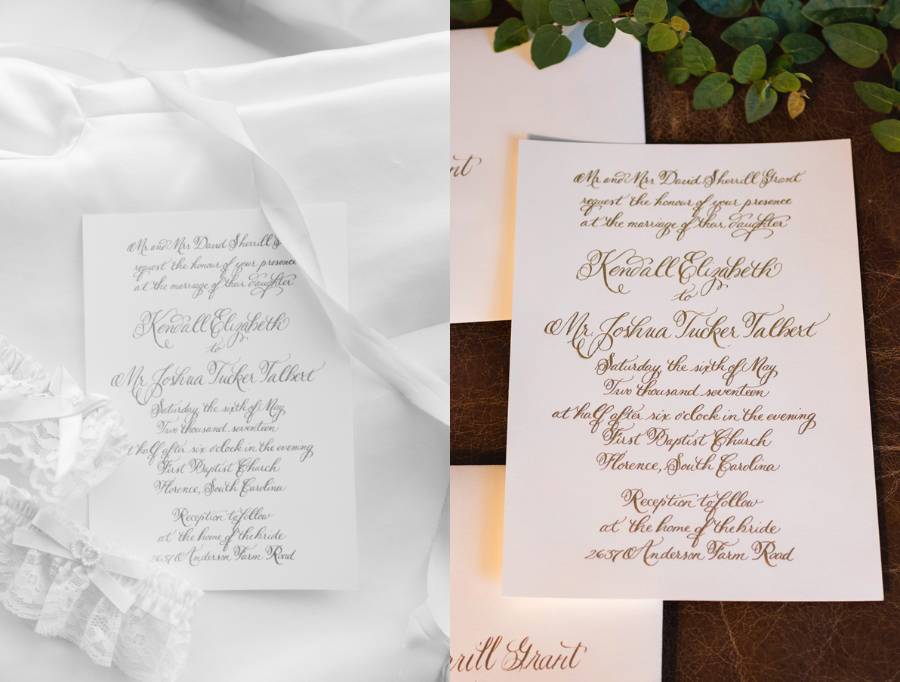 Mr. and Mrs. David Sherrill
request the honour of your presence
at the marriage of their daughter
Kendall Elizabeth
to
Mr. Joshua Tucker Talbert
Saturday, the sixth of May,
Two thousand seventeen
at half after six o'clock in the evening
First Baptist Church
Florence, South Carolina
Reception to follow
at the home of the bride
2637 Anderson Farm Road
Mr. and Mrs. David Sherrill Grant
request the honour of your presence
at the marriage of their daughter
Kendall Elizabeth
to
Mr. Joshua Tucker Talbert
Saturday, the sixth of May,
Two thousand seventeen
at half after six o'clock in the evening
First Baptist Church
Florence, South Carolina
Reception to follow
at the home of the bride
2637 Anderson Farm Road
Grant